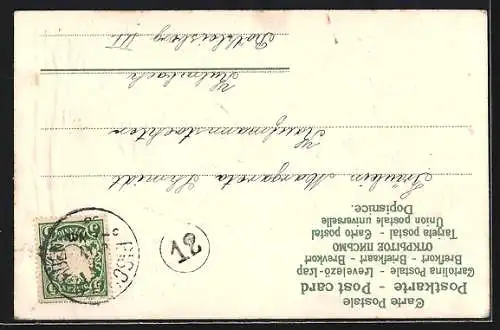 Carte Postale
Postkarte - Post card
Cartolina Postale - Levelező-Lap
Brefkort - Briefkaart - Brevkort
ОТКРЫТОЕ ПИСЬМО
Tarjeta postal - Carto postal
Union postale universelle
Dopisnice.
12
Fräulein Margareta Schmidt
Kaufmannstochter
Kulmbach
III